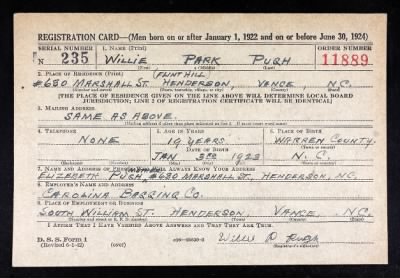 REGISTRATION CARD—(Men born on or after January 1, 1922 and on or before June 30, 1924)
SERIAL NUMBER 1. NAME (Print) ORDER NUMBER
N 235 WILLIE PARK PUGH 11889
(First) (Middle) (Last)
2. PLACE OF RESIDENCE (Print) FLINT HILL
#680 MARSHALL ST. HENDERSON, VANCE N.C.
(Number and street) (Town, township, village, or city) (County) (State)
[THE PLACE OF RESIDENCE GIVEN ON THE LINE ABOVE WILL DETERMINE LOCAL BOARD
JURISDICTION; LINE 2 OF REGISTRATION CERTIFICATE WILL BE IDENTICAL]
3. MAILING ADDRESS
SAME AS ABOVE.
4. TELEPHONE 5. AGE IN YEARS 6. PLACE OF BIRTH
NONE 19 YEARS WARREN COUNTY.
DATE OF BIRTH
JAN 3RD 1923 N.C.
(Exchange) (Number) (Mo.) (Day) (Yr.) (State or country)
7. NAME AND ADDRESS OF PERSON WHO WILL ALWAYS KNOW YOUR ADDRESS
ELIZEBETH PUGH, #680 MARSHALL ST, HENDERSON, NC.
8. EMPLOYER'S NAME AND ADDRESS
CAROLINA BAGGING CO.
9. PLACE OF EMPLOYMENT OR BUSINESS
SOUTH WILLIAM ST. HENDERSON, VANCE, N.C.
(Number and street or R. F. D. number) (Town) (County) (State)
I AFFIRM THAT I HAVE VERIFIED ABOVE ANSWERS AND THAT THEY ARE TRUE.
D. S. S. Form 1
(Revised 6-9-42) (over) Willie P. Pugh